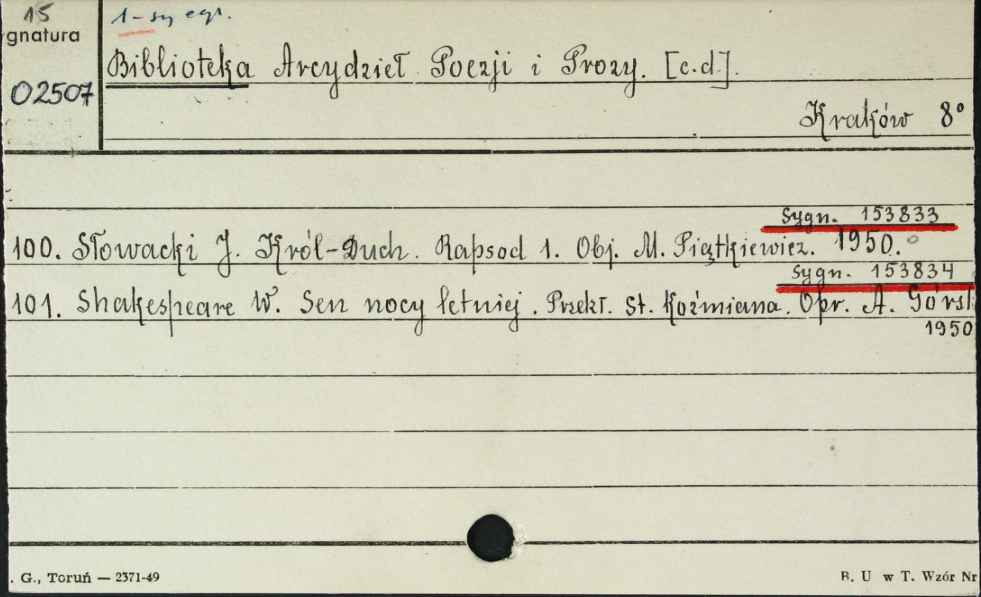 15
gnatura
1-szy egz.
02507
Biblioteka Arcydzieł Poezji i Prozy. [c.d.].
Kraków 8°
Sygn. 153833
100. Słowacki J. Król-Duch. Rapsod 1. Obj. M. Piątkiewicz. 1950.
Sygn. 153834
101. Shakespeare W. Sen nocy letniej. Przekł. St. Koźmiana. Opr. A. Górsk
1950
. G., Toruń — 2371-49
B. U w T. Wzór Nr